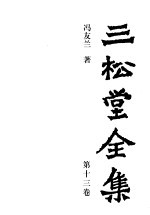 三松堂全集
冯友兰 著
第十三卷